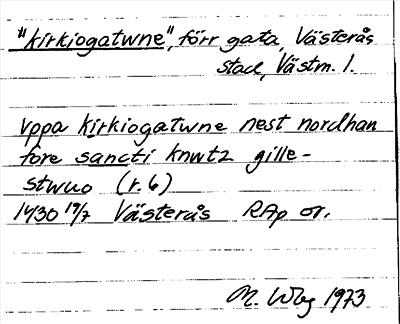 "kirkiogatwne", förr gata, Västerås
stad, Västm. l.
vppa kirkiogatwne nest nordhan
före sancti knwtz gille-
stwuo (r. 6)
1430 19/7 Västerås RAp or.
M. Wbg 1973